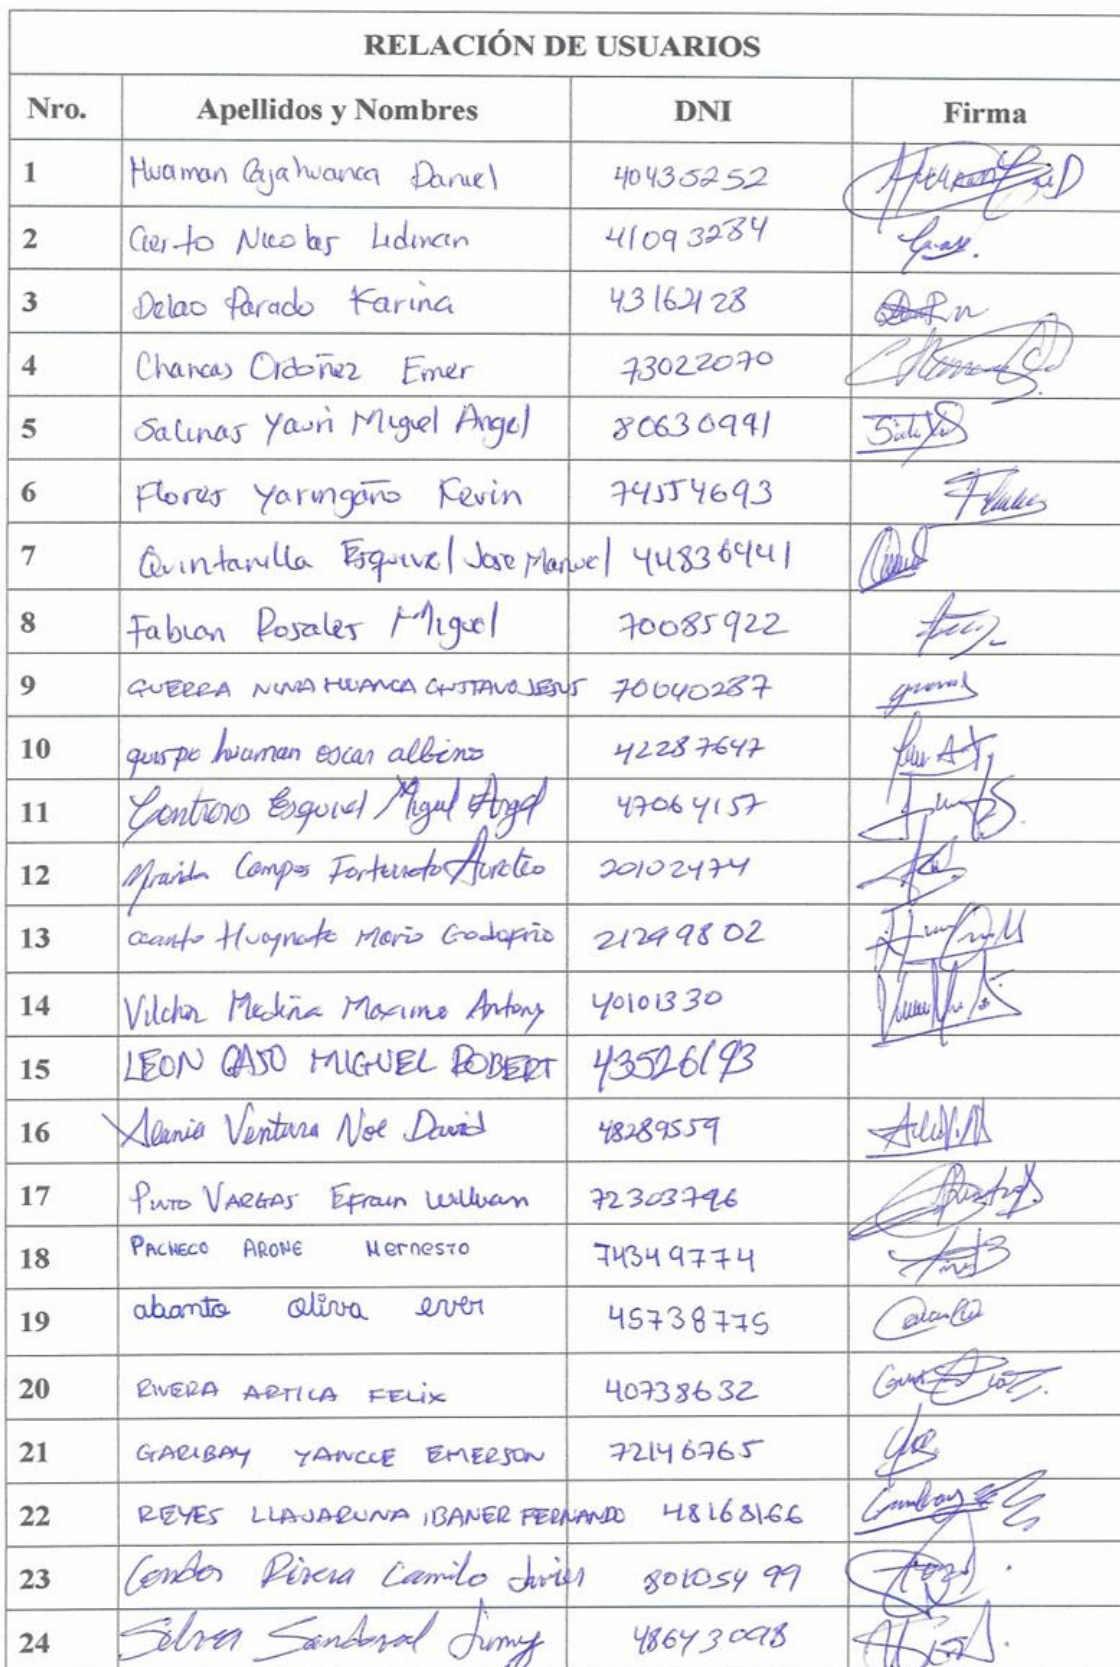 RELACIÓN DE USUARIOS
Nro. Apellidos y Nombres DNI Firma
1 Huaman Cajahuanca Daniel 40435252
2 Cierto Nicolas Lidman 41093284
3 Delao Parado Karina 43162128
4 Chancas Ordoñez Emer 73022070
5 Salinas Yauri Miguel Angel 80630991
6 Flores Yaringaño Kevin 74554693
7 Quintanilla Esquivel Jose Manuel 44836441
8 Fabian Rosales Miguel 70085922
9 GUERRA NINAHUANCA GUSTAVO JESUS 70040287
10 quispe huaman oscar albino 42287647
11 Contreras Esquivel Miguel Angel 47064157
12 Miranda Campos Fortunato Aureteo 20102474
13 Huaynate Mario Godofrio 21299802
14 Vilchez Medina Maximo Antony 40101330
15 LEON GASO MIGUEL ROBERT 43526193
16 Alania Ventura Noe David 48289559
17 PINTO VARGAS Efrain William 72303796
18 PACHECO ARONE Hernesto 74349774
19 abanto oliva ever 45738775
20 RIVERA ARTICA FELIX 40738632
21 GARIBAY YANCCE EMERSON 72146765
22 REYES LLAJARUNA IBANER FERNANDO 48168166
23 Condor Rivera Camilo Javier 80105499
24 Silva Sandoval Jimy 48643098